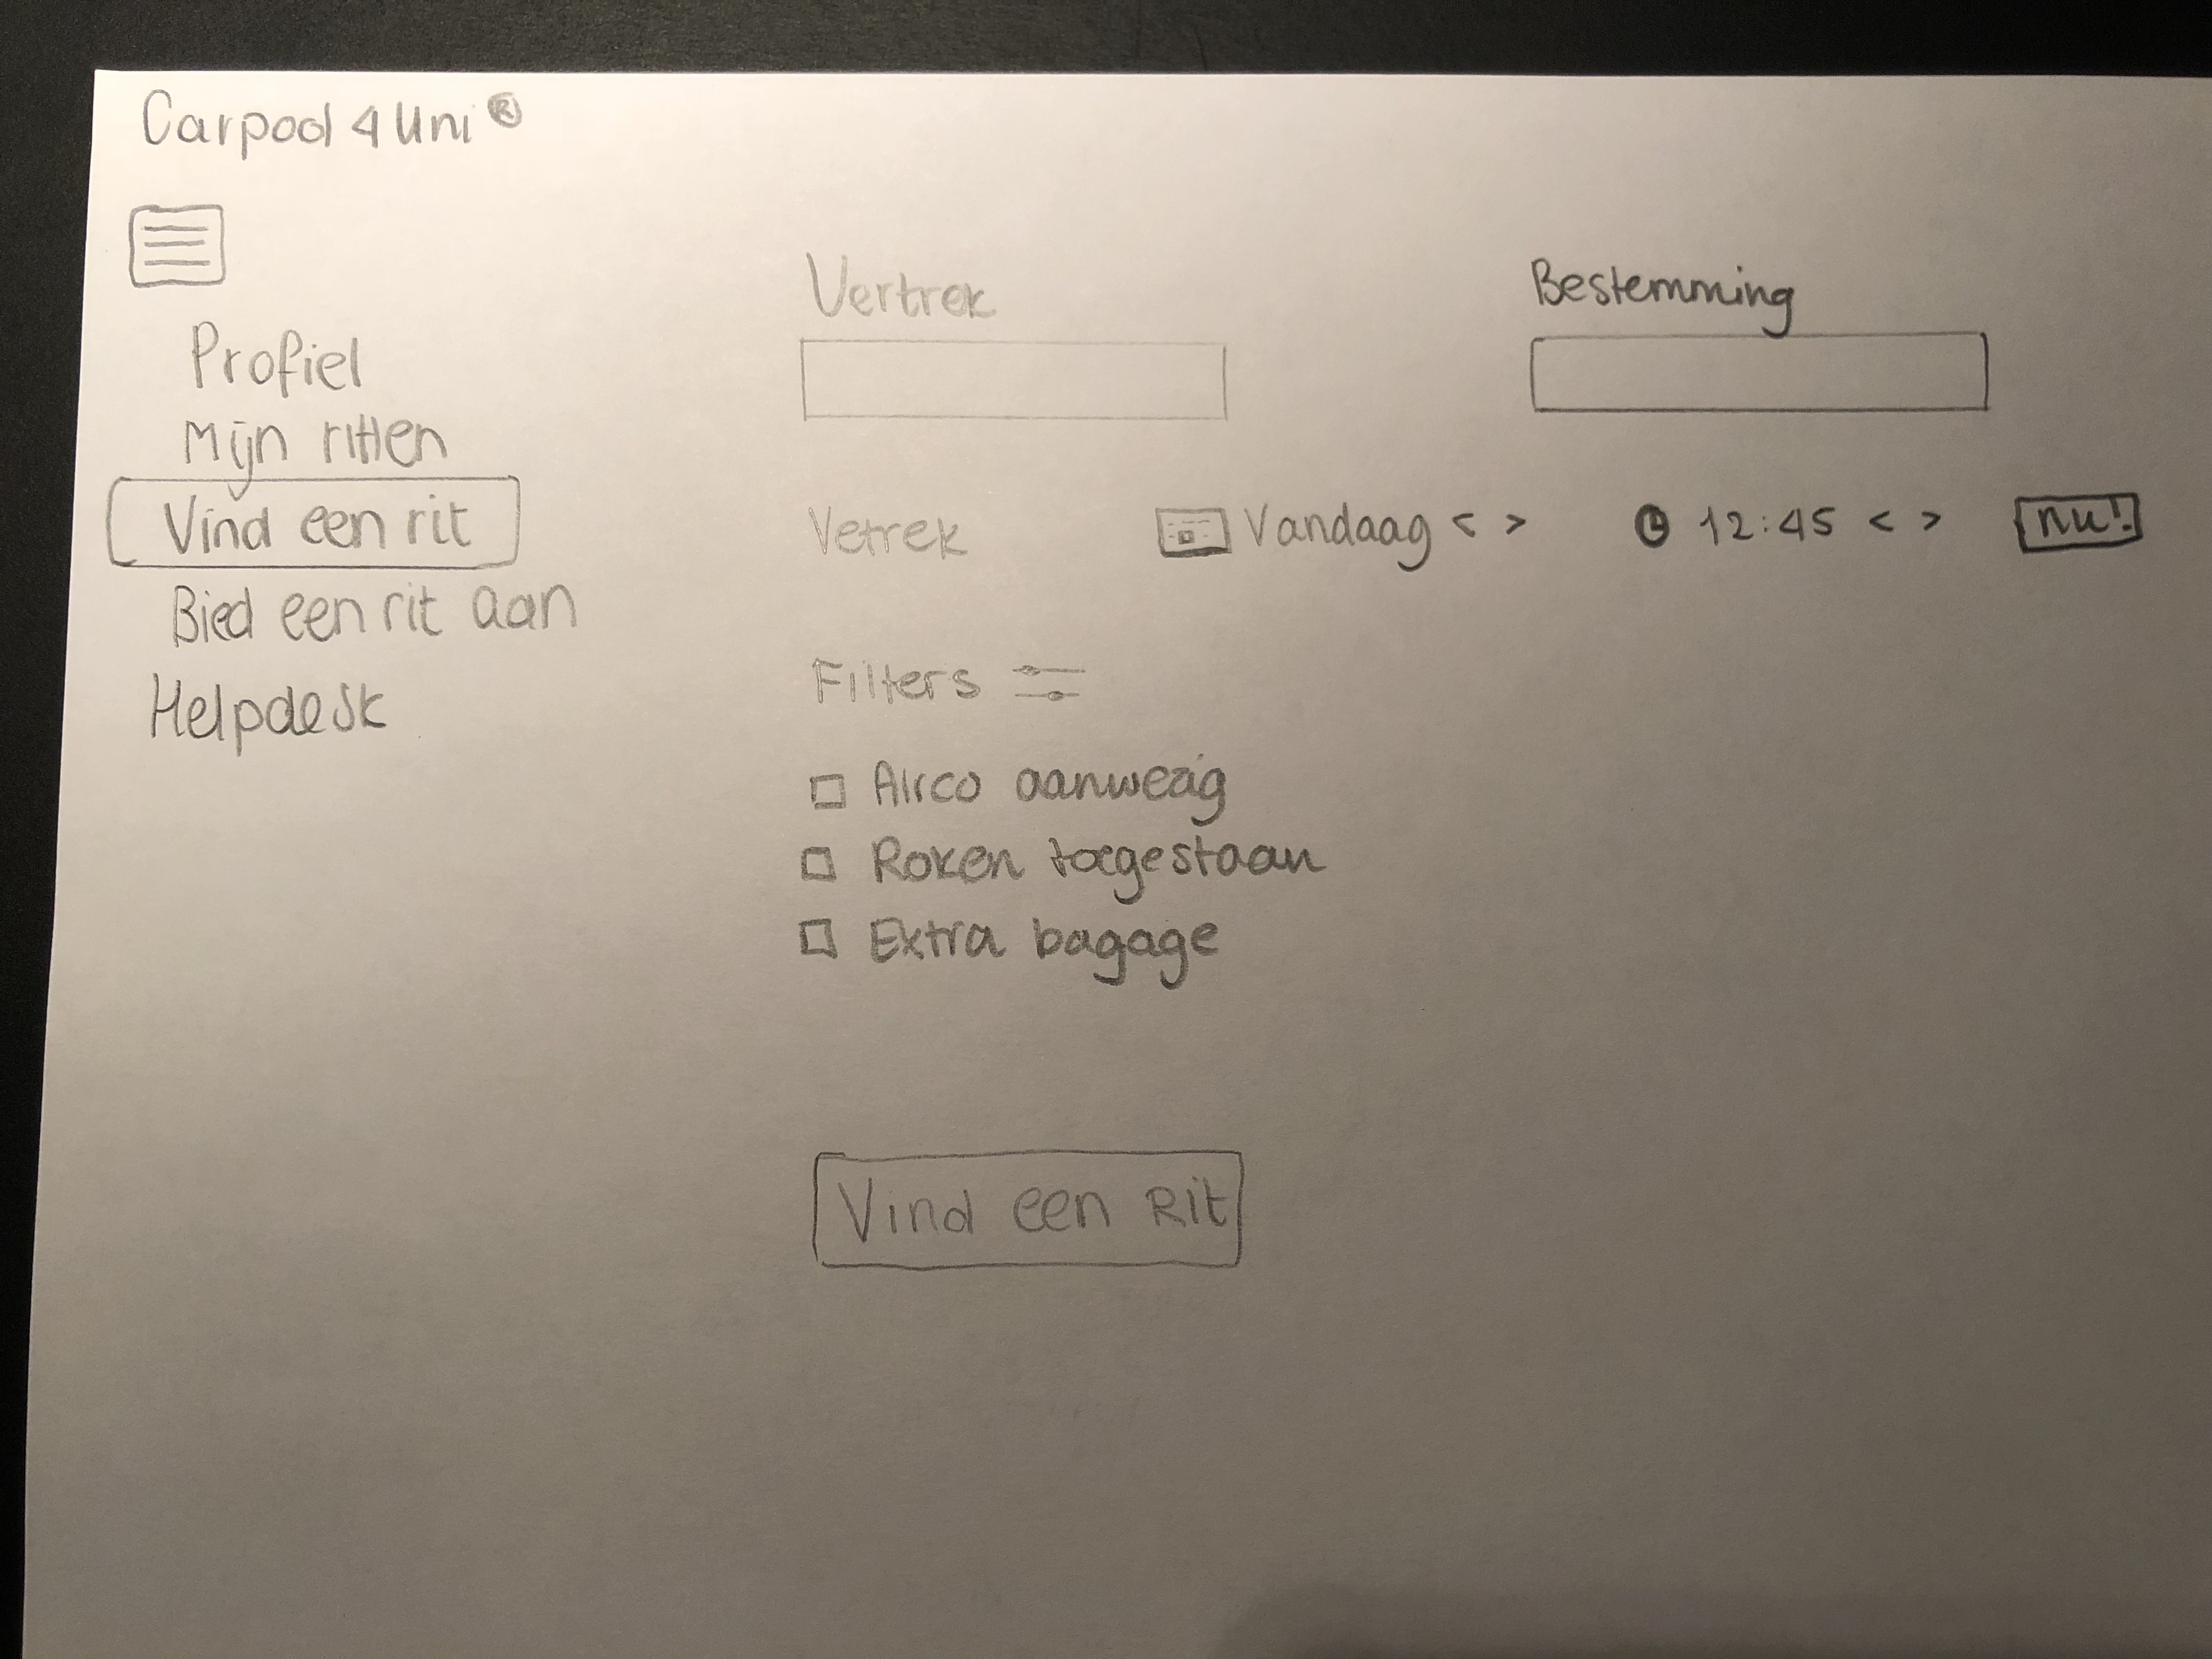 Carpool 4 Uni ®
Profiel
Mijn ritten
Vind een rit
Bied een rit aan
Helpdesk
Vertrek
Bestemming
Vetrek Vandaag < > 12:45 < > nu!
Filters
Airco aanwezig
Roken toegestaan
Extra bagage
Vind een Rit